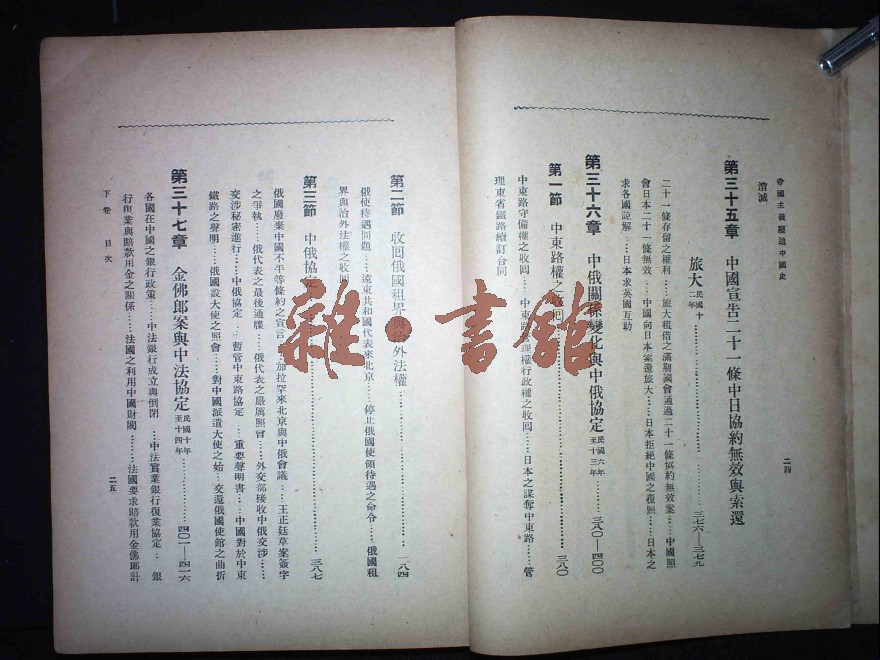 帝國主義壓迫中國史
二四
消滅
第三十五章 中國宣告二十一條中日協約無效與索還
旅大 民國十二年 ⋯⋯ 三七六—三七九
二十一條存留之權利⋯⋯旅大租借之滿期國會通過二十一條協約無效案⋯⋯中國照
會日本二十一條無效⋯⋯中國向日本索還旅大⋯⋯日本拒絕中國之覆照⋯⋯日本之
求各國諒解⋯⋯日本求英國互助
第三十六章 中俄關係變化與中俄協定 民國六年至十三年 ⋯⋯ 三八〇—四〇〇
第一節 中東路權之收回 ⋯⋯ 三八〇
中東路守備權之收回⋯⋯中東路管理權行政權之收回⋯⋯日本之謀奪中東路⋯⋯管
理東省鐵路續訂合同
第二節 收回俄國租界與治外法權 ⋯⋯ 八四
俄使待遇問題⋯⋯遠東共和國代表來北京⋯⋯停止俄國使領待遇之命令⋯⋯俄國租
界與治外法權之收回
第三節 中俄協定 ⋯⋯ 三八七
俄國廢棄中國不平等條約之宣言⋯⋯加拉罕來北京與中俄會議⋯⋯王正廷草案簽字
之爭執⋯⋯俄代表之最後通牒⋯⋯俄代表之嚴厲照會⋯⋯外交部接收中俄交涉⋯⋯
交涉秘密進行⋯⋯中俄協定⋯⋯暫管中東路協定⋯⋯重要聲明書⋯⋯中國對於中東
鐵路之聲明⋯⋯俄國設大使之照會⋯⋯對中國派遣大使之始⋯⋯交還俄國使館之曲折
第三十七章 金佛郎案與中法協定 民國十年至十四年 ⋯⋯ 四〇一—四一六
各國在中國之銀行政策⋯⋯中法銀行成立與倒閉⋯⋯中法實業銀行復業協定⋯⋯銀
行復業與賠款用金之關係⋯⋯法國之利用中國財閥⋯⋯法國要求賠款用金佛郎計
下卷 目次
二五
雜·書館